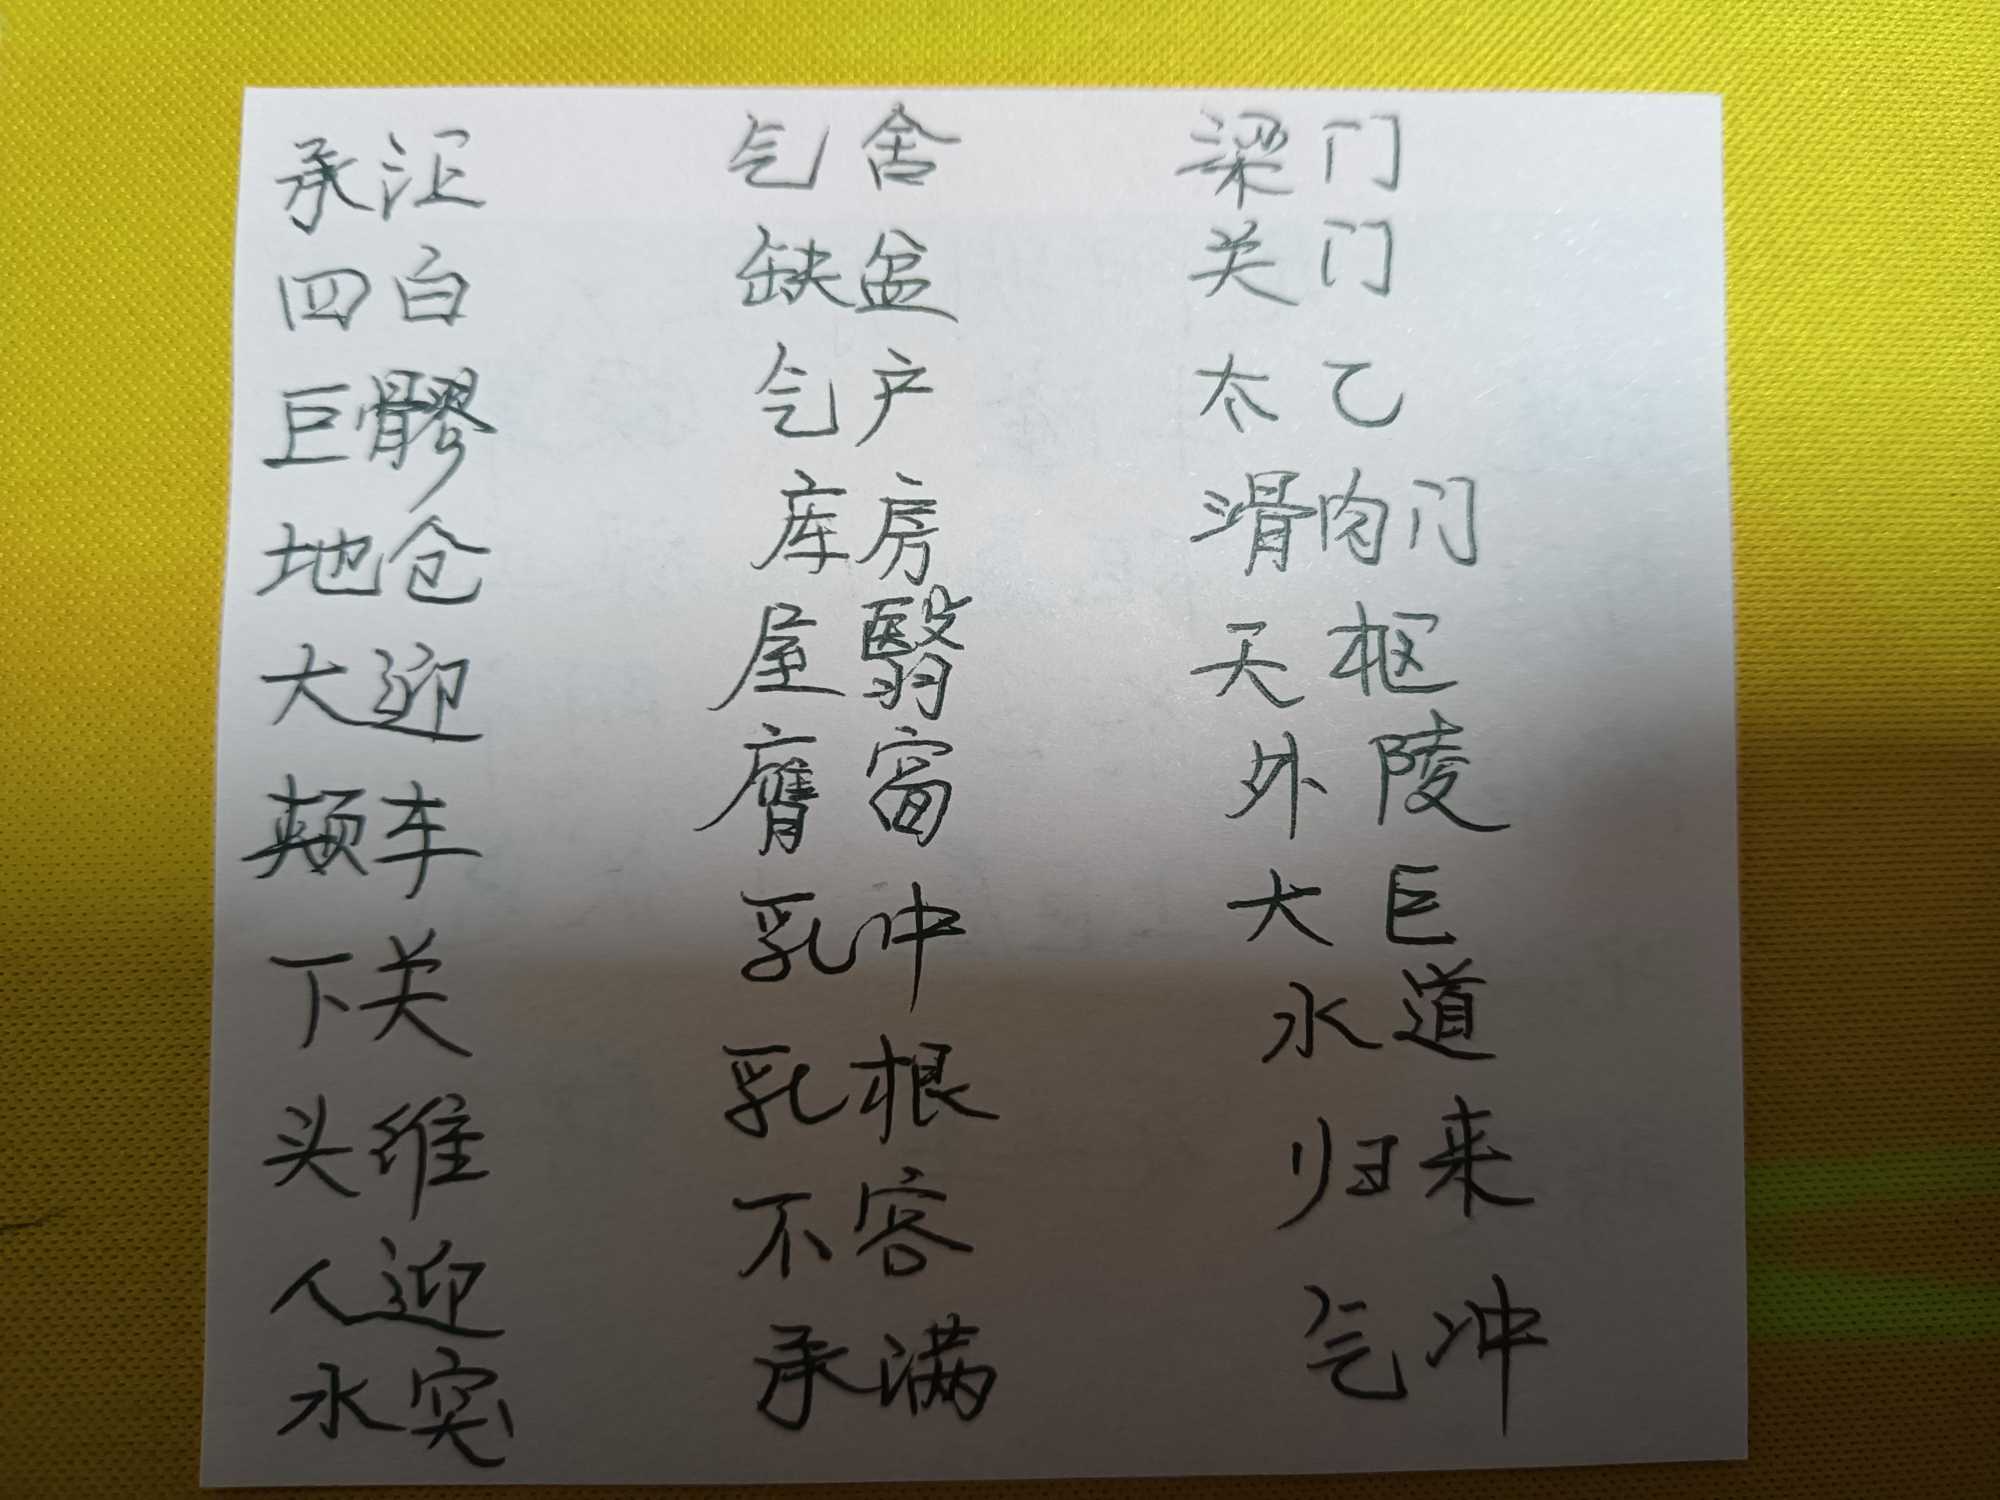 承泣
四白
巨髎
地仓
大迎
颊车
下关
头维
人迎
水突
气舍
缺盆
气户
库房
屋翳
膺窗
乳中
乳根
不容
承满
梁门
关门
太乙
滑肉门
天枢
外陵
大巨
水道
归来
气冲